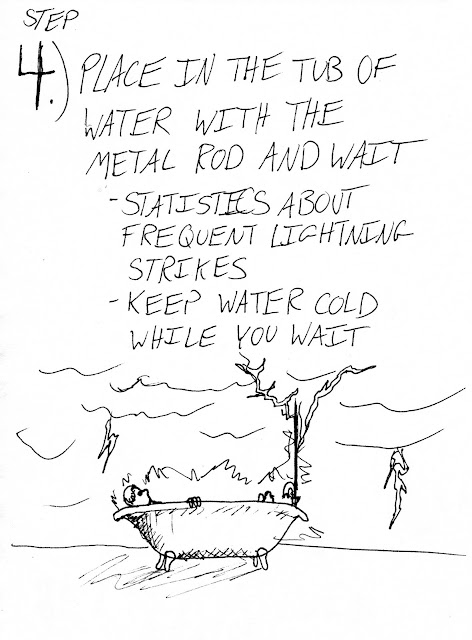 STEP
4.) PLACE IN THE TUB OF
WATER WITH THE
METAL ROD AND WAIT
- STATISTICS ABOUT
FREQUENT LIGHTNING
STRIKES
- KEEP WATER COLD
WHILE YOU WAIT